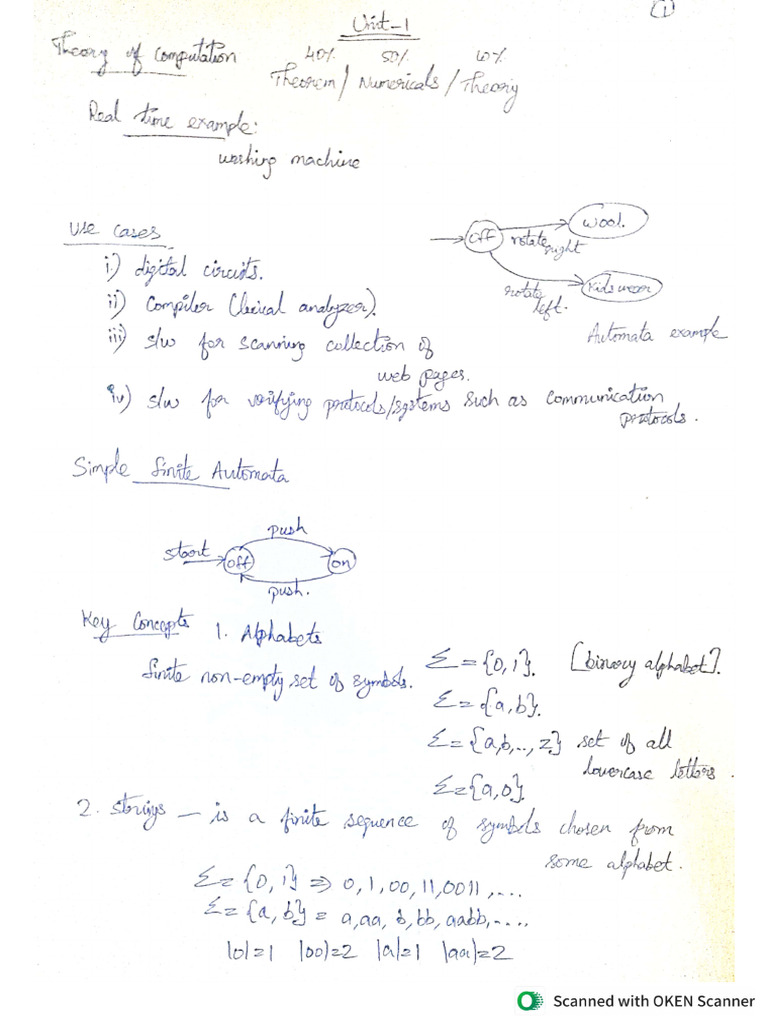 1
Unit-1
Theory of computation
40% 50% 10%
Theorem / Numericals / Theory
Real time example:
washing machine
Use cases
off rotate right wool.
rotate left. Kids wear
Automata example
i) digital circuits.
ii) Compiler (lexical analyzer).
iii) s/w for scanning collection of
web pages.
iv) s/w for verifying protocols/systems such as communication
protocols.
Simple finite Automata
push
start off on
push.
Key Concepts 1. Alphabets
finite non-empty set of symbols.
Σ = {0,1}. [binary alphabet].
Σ = {a,b}.
Σ = {a,b,..,z} set of all
lowercase letters.
Σ = {a,0}.
2. Strings — is a finite sequence of symbols chosen from
some alphabet.
Σ = {0,1} => 0,1,00,11,0011,...
Σ = {a,b} = a,aa,b,bb,aabb,....
|0|=1 |00|=2 |a|=1 |aa|=2
Scanned with OKEN Scanner